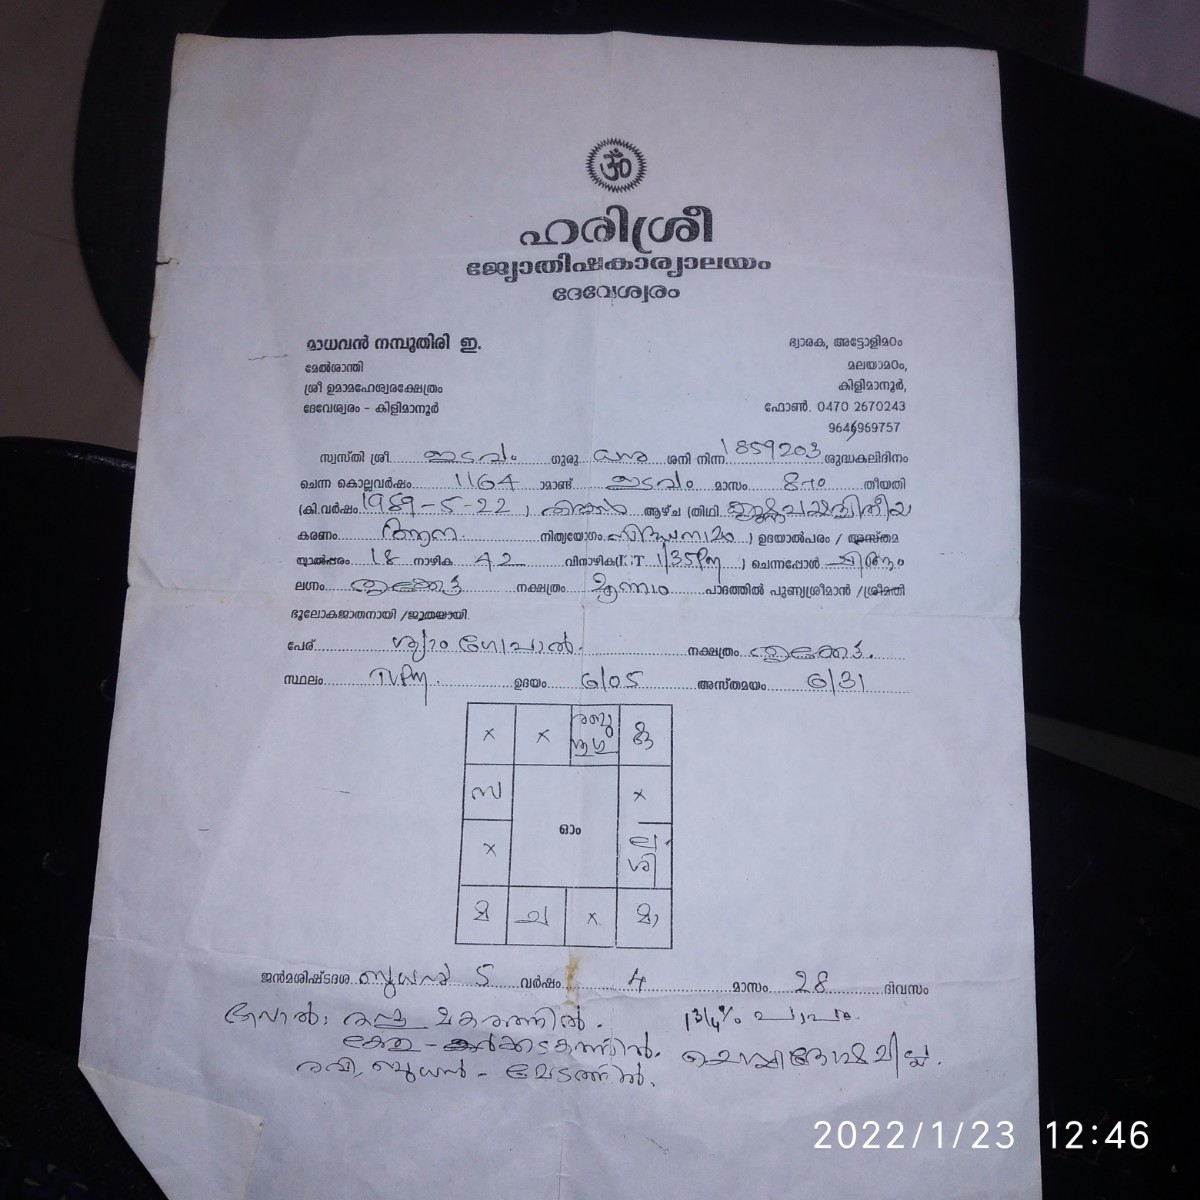 ॐ
ഹരിശ്രീ
ജ്യോതിഷകാര്യാലയം
ദേവേശ്വരം
മാധവൻ നമ്പൂതിരി ഇ.
മേൽശാന്തി
ശ്രീ ഉമാമഹേശ്വരക്ഷേത്രം
ദേവേശ്വരം - കിളിമാനൂർ
ദ്വാരക, അട്ടോളിമഠം
മലയാമഠം,
കിളിമാനൂർ,
ഫോൺ. 0470 2670243
9645969757
സ്വസ്തി ശ്രീ ഇടവം ഗുരു ധനു ശനി നിന്ന 1859203 ശുദ്ധകലിദിനം
ചെന്ന കൊല്ലവർഷം 1164 ാമാണ്ട് ഇടവം മാസം 8-ാം തീയതി
(ക്രി.വർഷം 1989-5-22 ) തിങ്കൾ ആഴ്ച (തിഥി
കരണം ആന നിത്യയോഗം ) ഉദയാൽപരം / അസ്തമ
യാൽപരം 18 നാഴിക 42 വിനാഴിക(I.S.T 1/35 PM ) ചെന്നപ്പോൾ ചിങ്ങം
ലഗ്നം തൃക്കേട്ട നക്ഷത്രം മൂന്നാം പാദത്തിൽ പുണ്യശ്രീമാൻ /ശ്രീമതി
ഭൂലോകജാതനായി /ജൂതയായി.
പേര് ശ്യാം ഗോപാൽ. നക്ഷത്രം തൃക്കേട്ട.
സ്ഥലം TVPM. ഉദയം 6/05 അസ്തമയം 6/31
x x കു
സ x
ഓം
x ല ശി
മ ച x മാ
ജൻമശിഷ്ടദശ ബുധൻ 5 വർഷം 4 മാസം 28 ദിവസം
മകരത്തിൽ. 1 3/4% പാപം.
കേതു - കർക്കടകത്തിൽ. ചൊവ്വാദോഷമില്ല.
രവി, ബുധൻ - മേടത്തിൽ.
2022/1/23 12:46